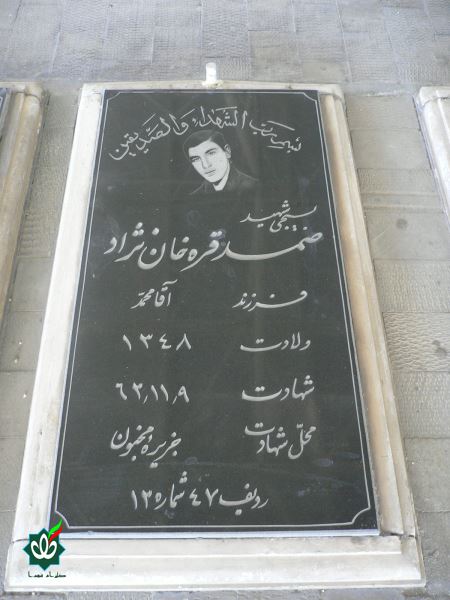 بسم رب الشهداء والصدیقین
بسیجی شهید
صمد قره خان نژاد
فرزند آقامحمد
ولادت ۱۳۴۸
شهادت ۶۲,۱۱,۹
محل شهادت جزیره مجنون
ردیف ۴۷ شماره ۱۳